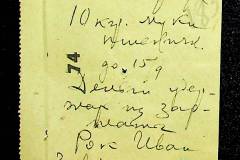 10 кгр. муки
пшенич.
до 15 д
74
Деньги удер-
жат из зар-
платы
Рок Иван